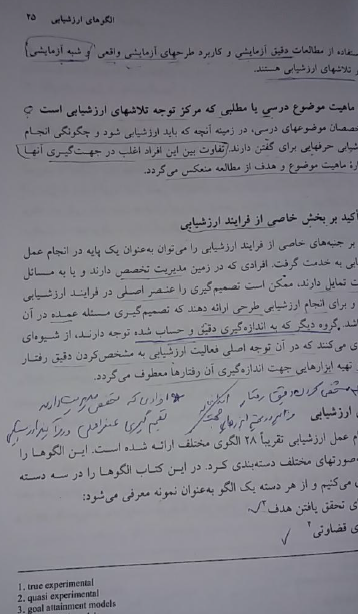 الگوهای ارزشیابی ۲۵
ستفاده از مطالعات دقیق آزمایشی و کاربرد طرحهای آزمایشی واقعی ۱ و شبه آزمایشی ۲
ز تلاشهای ارزشیابی هستند.
ماهیت موضوع درسی یا مطلبی که مرکز توجه تلاشهای ارزشیابی است
خصصان موضوعهای درسی، در زمینه آنچه که باید ارزشیابی شود و چگونگی انجام
شیابی حرفهایی برای گفتن دارند. تفاوت بین این افراد اغلب در جهت‌گیری آنها
ارهٔ ماهیت موضوع و هدف از مطالعه منعکس می‌گردد.
أکید بر بخش خاصی از فرایند ارزشیابی
بر جنبه‌های خاصی از فرایند ارزشیابی را می‌توان به‌عنوان یک پایه در انجام عمل
یابی به خدمت گرفت. افرادی که در زمین مدیریت تخصص دارند و یا به مسائل
ت تمایل دارند، ممکن است تصمیم‌گیری را عنصر اصلی در فرایند ارزشیابی
و برای انجام ارزشیابی طرحی ارائه دهند که تصمیم‌گیری مسئله عمده در آن
شد. گروه دیگر که به اندازه‌گیری دقیق و حساب شده توجه دارند، از شیوه‌ای
ی می‌کنند که در آن توجه اصلی فعالیت ارزشیابی به مشخص‌کردن دقیق رفتار
تهیه ابزارهایی جهت اندازه‌گیری آن رفتارها معطوف می‌گردد.
ی ارزشیابی
م عمل ارزشیابی تقریباً ۲۸ الگوی مختلف ارائه شده است. این الگوها را
ه‌صورتهای مختلف دسته‌بندی کرد. در این کتاب الگوها را در سه دسته
می‌کنیم و از هر دسته یک الگو به‌عنوان نمونه معرفی می‌شود:
ی تحقق یافتن هدف ۳
ی قضاوتی ۴
1. true experimental
2. quasi experimental
3. goal attainment models